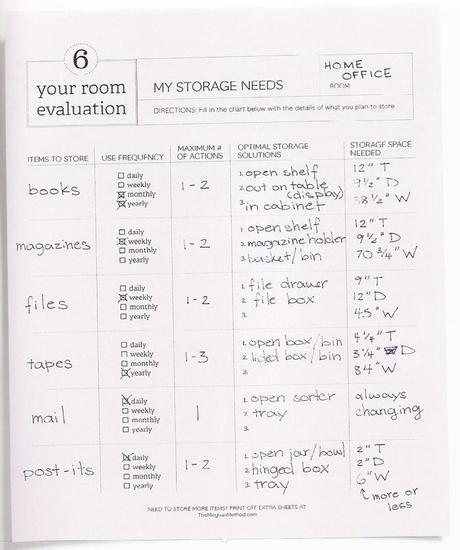 6
your room
evaluation
MY STORAGE NEEDS
HOME
OFFICE
ROOM
DIRECTIONS: Fill in the chart below with the details of what you plan to store
ITEMS TO STORE
USE FREQUENCY
MAXIMUM #
OF ACTIONS
OPTIMAL STORAGE
SOLUTIONS
STORAGE SPACE
NEEDED
books
daily
weekly
monthly
yearly
1-2
1. open shelf
2. out on table
(display)
3. in cabinet
12" T
9 1/2" D
58 1/2" W
magazines
daily
weekly
monthly
yearly
1-2
1. open shelf
2. magazine holder
3. basket/bin
12" T
9 1/2" D
70 3/4" W
files
daily
weekly
monthly
yearly
1-2
1. file drawer
2. file box
3.
9" T
12" D
45" W
tapes
daily
weekly
monthly
yearly
1-3
1. open box/bin
2. lided box/bin
3.
4 1/4" T
3 1/4" D
84" W
mail
daily
weekly
monthly
yearly
1
1. open sorter
2. tray
3.
always
changing
post-its
daily
weekly
monthly
yearly
1-2
1. open jar/bowl
2. hinged box
3. tray
2" T
2" D
6" W
↑ more or
less
NEED TO STORE MORE ITEMS? PRINT OFF EXTRA SHEETS AT
TheMeghanMethod.com